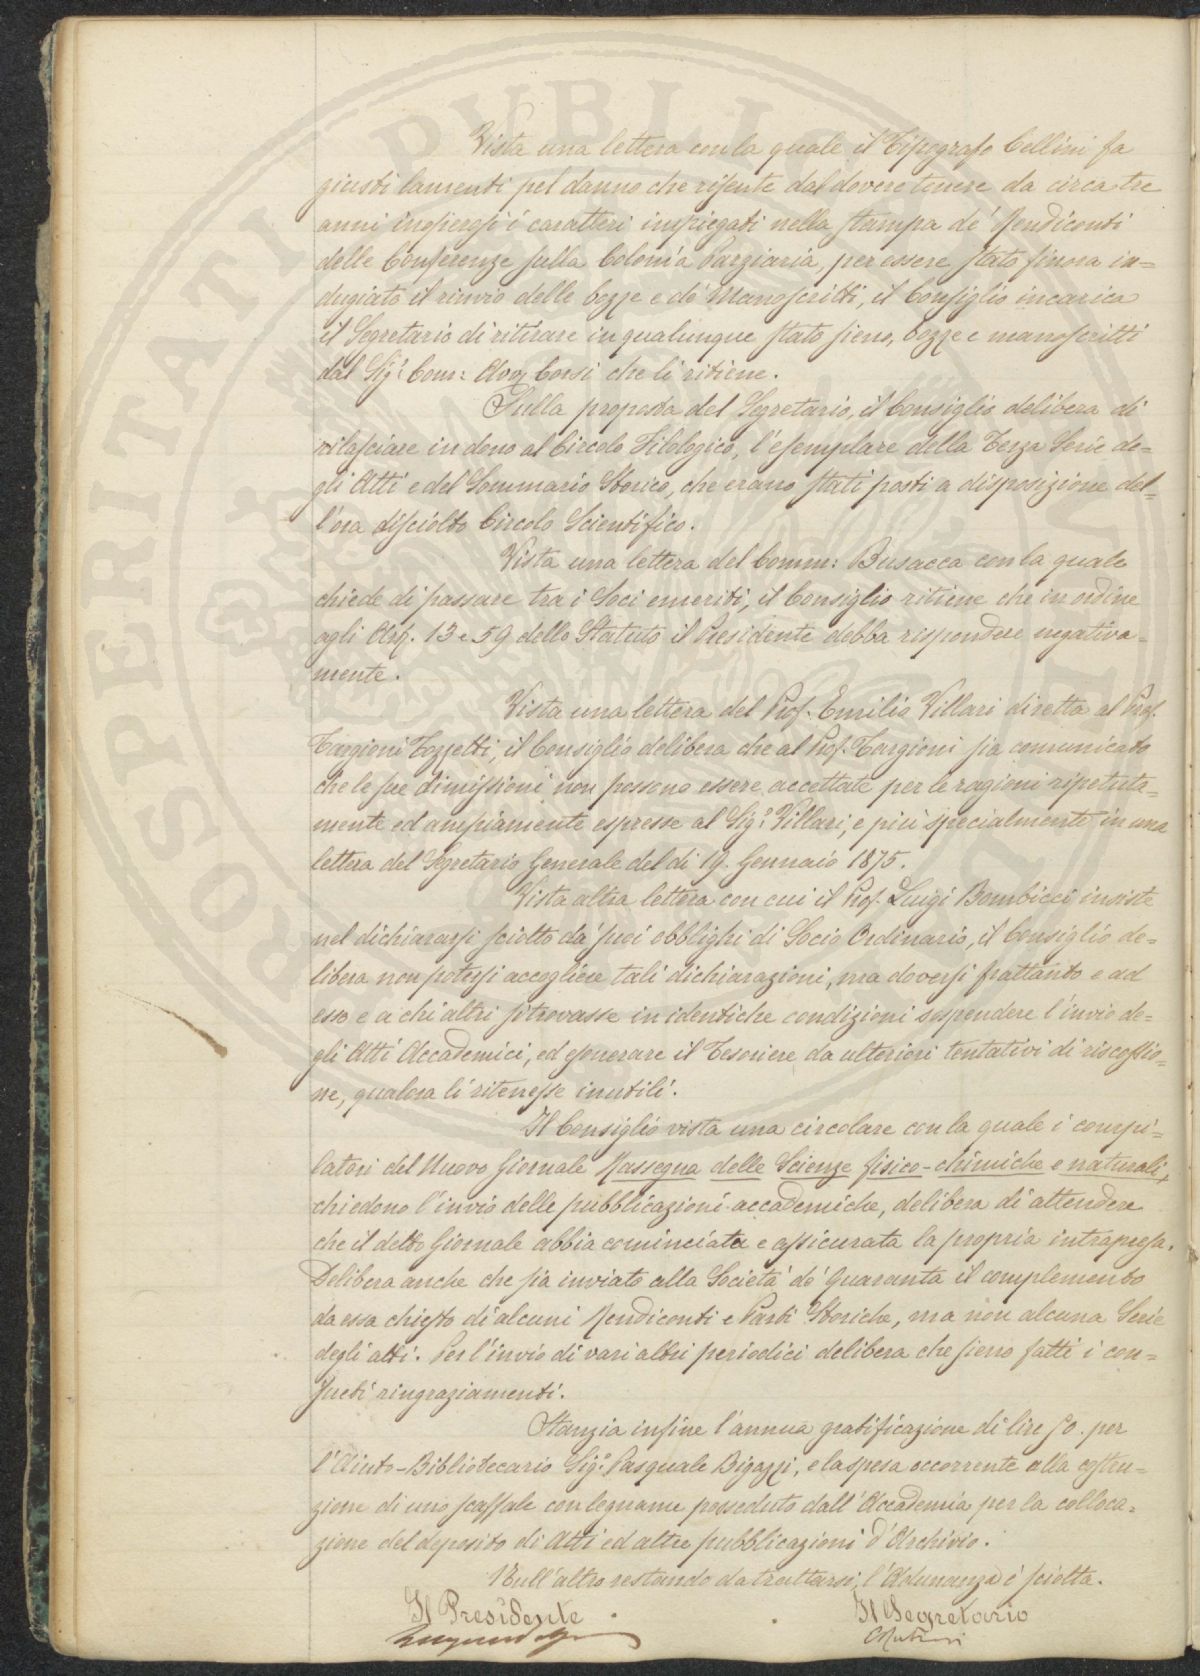 Vista una lettera con la quale il Tipografo Cellini fa
giusti lamenti pel danno che risente dal dovere tenere da circa tre
anni inoperosi i caratteri impiegati nella stampa de' Rendiconti
delle Conferenze sulla Colonia Parziaria, per essere stato finora in=
dugiato il rinvio delle bozze e de' Manoscritti, il Consiglio incarica
il Segretario di ritirare in qualunque stato sieno, bozze e manoscritti
dal Sig: Com: Avv. Corsi che li ritiene.
Sulla proposta del Segretario, il Consiglio delibera di
rilasciare in dono al Circolo Filologico, l'esemplare della Terza Serie de=
gli Atti e del Sommario Storico, che erano stati posti a disposizione del=
l'ora disciolto Circolo Scientifico.
Vista una lettera del Comm: Busacca con la quale
chiede di passare tra i Soci emeriti, il Consiglio ritiene che in ordine
agli Art. 13 e 59 dello Statuto il Presidente debba rispondere negativa=
mente.
Vista una lettera del Prof. Emilio Villari diretta al Prof.
Targioni Tozzetti, il Consiglio delibera che al Prof. Targioni sia comunicato
che le sue dimissioni non possono essere accettate per le ragioni ripetuta=
mente ed ampiamente espresse al Sig: Villari, e più specialmente in una
lettera del Segretario Generale del dì 19. Gennaio 1875.
Vista altra lettera con cui il Prof. Luigi Bombicci insiste
nel dichiararsi sciolto da' suoi obblighi di Socio Ordinario, il Consiglio de=
libera non potersi accogliere tali dichiarazioni, ma doversi frattanto e ad
esso e a chi altri si trovasse in identiche condizioni sospendere l'invio de=
gli Atti Accademici, ed esonerare il Tesoriere da ulteriori tentativi di riscossio=
ne, qualora li ritenesse inutili.
Il Consiglio vista una circolare con la quale i compi=
latori del Nuovo Giornale Rassegna delle Scienze fisico-chimiche e naturali,
chiedono l'invio delle pubblicazioni accademiche, delibera di attendere
che il detto Giornale abbia cominciata e assicurata la propria intrapresa.
Delibera anche che sia inviato alla Società de' Quaranta il complemento
da essa chiesto di alcuni Rendiconti e Parti Storiche, ma non alcuna Serie
degli atti. Per l'invio di vari altri periodici delibera che sieno fatti i con=
sueti ringraziamenti.
Stanzia infine l'annua gratificazione di lire 50. per
l'Aiuto-Bibliotecario Sig: Pasquale Bigazzi, e la spesa occorrente alla costru=
zione di uno scaffale con legname posseduto dall'Accademia per la colloca=
zione del deposito di Atti ed altre pubblicazioni d'Archivio.
Null'altro restando da trattarsi, l'Adunanza è sciolta.
Il Presidente
Il Segretario
PROSPERITATI PVBLICAE